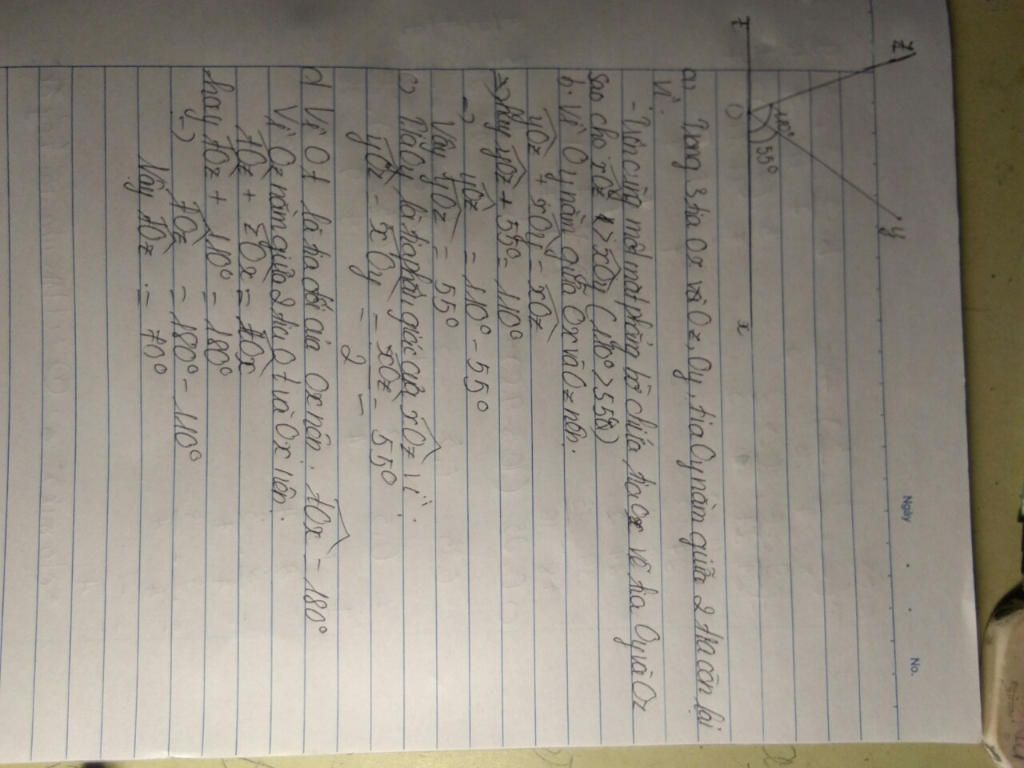 Ngày . .
No.
z
y
t
O
x
110°
55°
a, Trong 3 tia Ox và Oz, Oy, tia Oy nằm giữa 2 tia còn lại
Vì:
- Trên cùng một mặt phẳng bờ chứa tia Ox vẽ tia Oy và Oz
sao cho xOz > xOy (110° > 55°)
b, Vì Oy nằm giữa Ox và Oz nên.
yOz + xOy = xOz
Hay yOz + 55° = 110°
yOz = 110° - 55°
Vậy yOz = 55°
c, Tia Oy là tia phân giác của xOz vì:
yOz = xOy = xOz = 55°
2
d, Vì Ot là tia đối của Ox nên: tOx = 180°
Vì Oz nằm giữa 2 tia Ot và Ox nên.
tOz + zOx = tOx
hay tOz + 110° = 180°
tOz = 180° - 110°
Vậy tOz = 70°